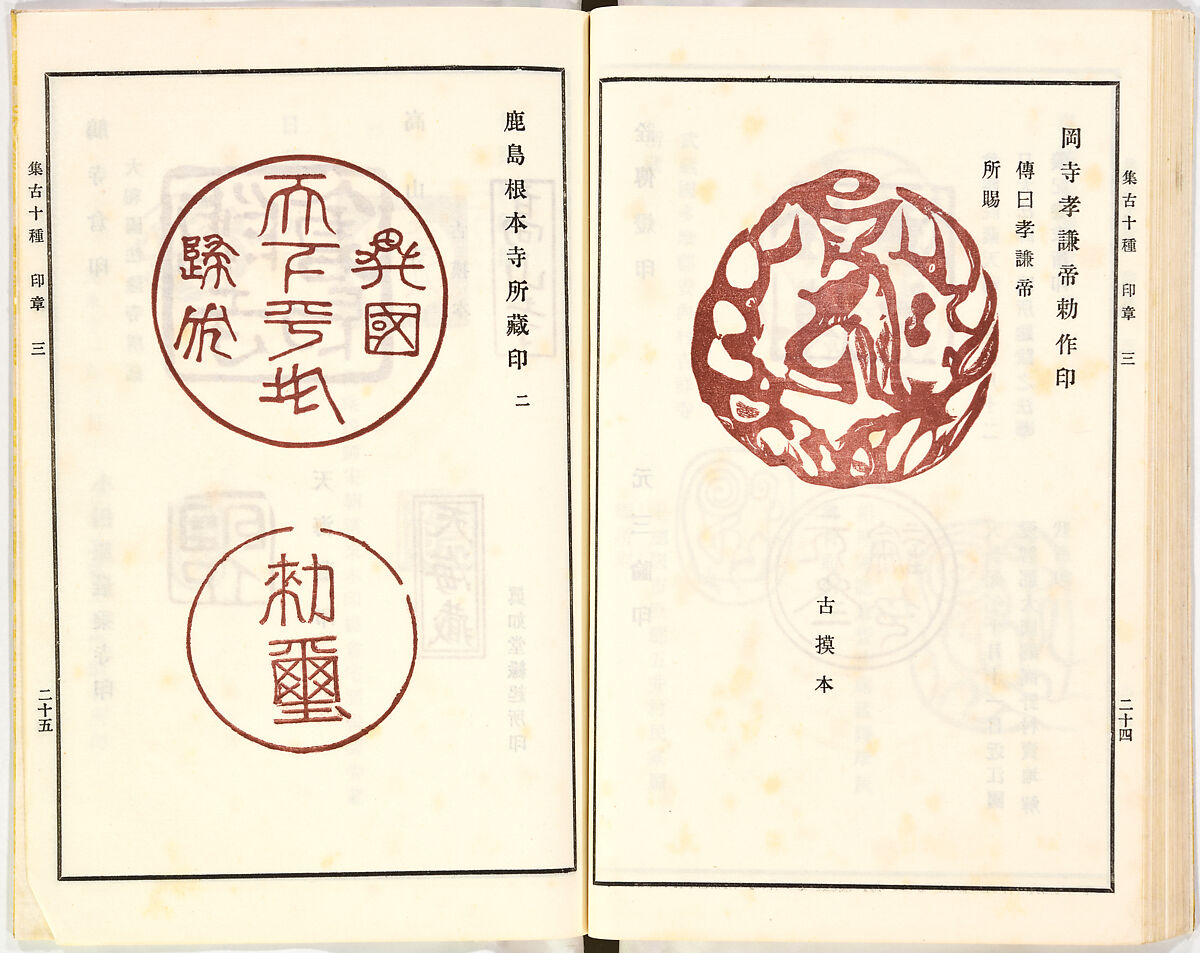 集古十種 印章 三 二十四
岡寺孝謙帝勅作印
傳曰孝謙帝
所賜
古摸本
鹿島根本寺所藏印 二
異國
天下平
歸
勅璽
集古十種 印章 三 二十五